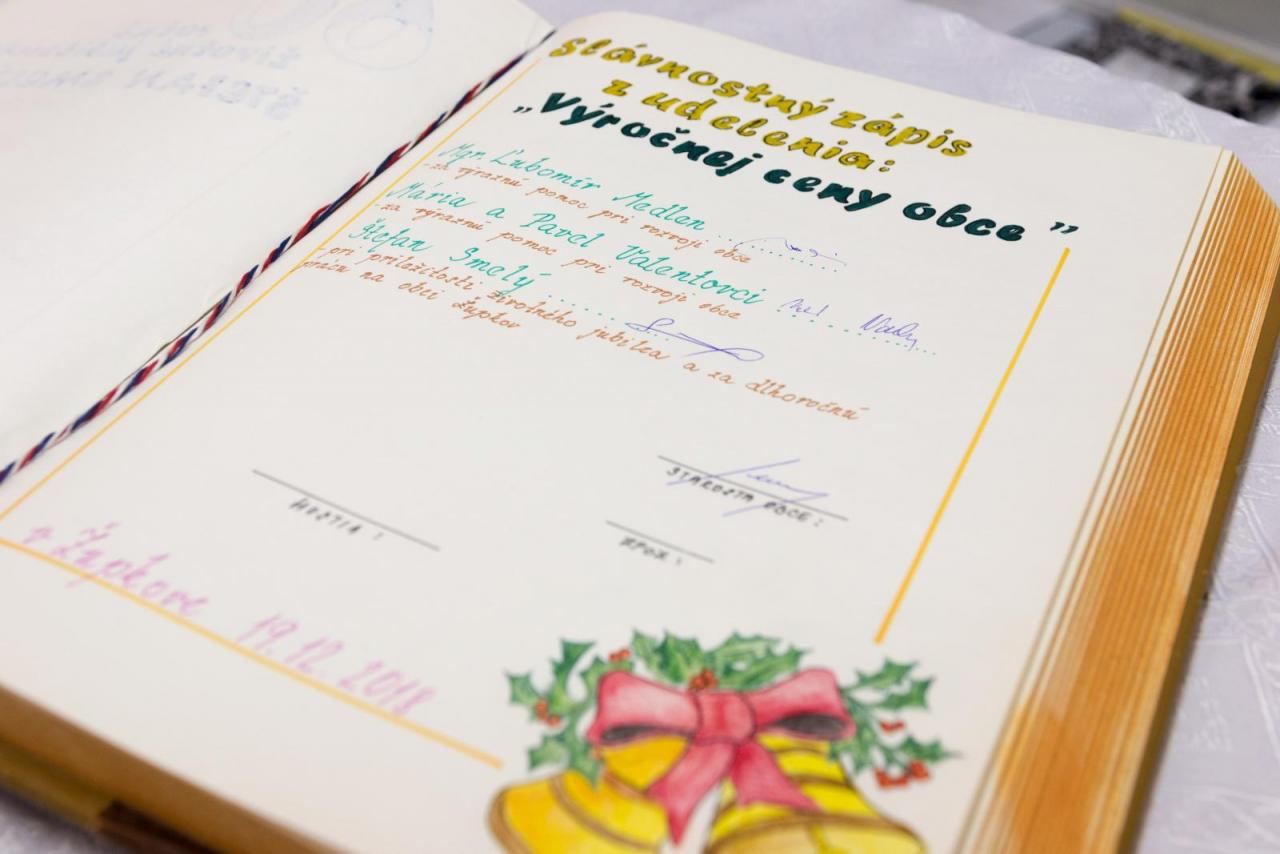 Slávnostný zápis
z udelenia:
„Výročnej ceny obce”
Mgr. Ľubomír Medlen ............
-za výraznú pomoc pri rozvoji obce
Mária a Pavel Valentovci ............
-za výraznú pomoc pri rozvoji obce
Štefan Smelý ............
-pri príležitosti životného jubilea a za dlhoročnú
prácu na obci Župkov
STAROSTA OBCE:
HOSTIA:
ZPOZ:
v Župkove 19.12.2018